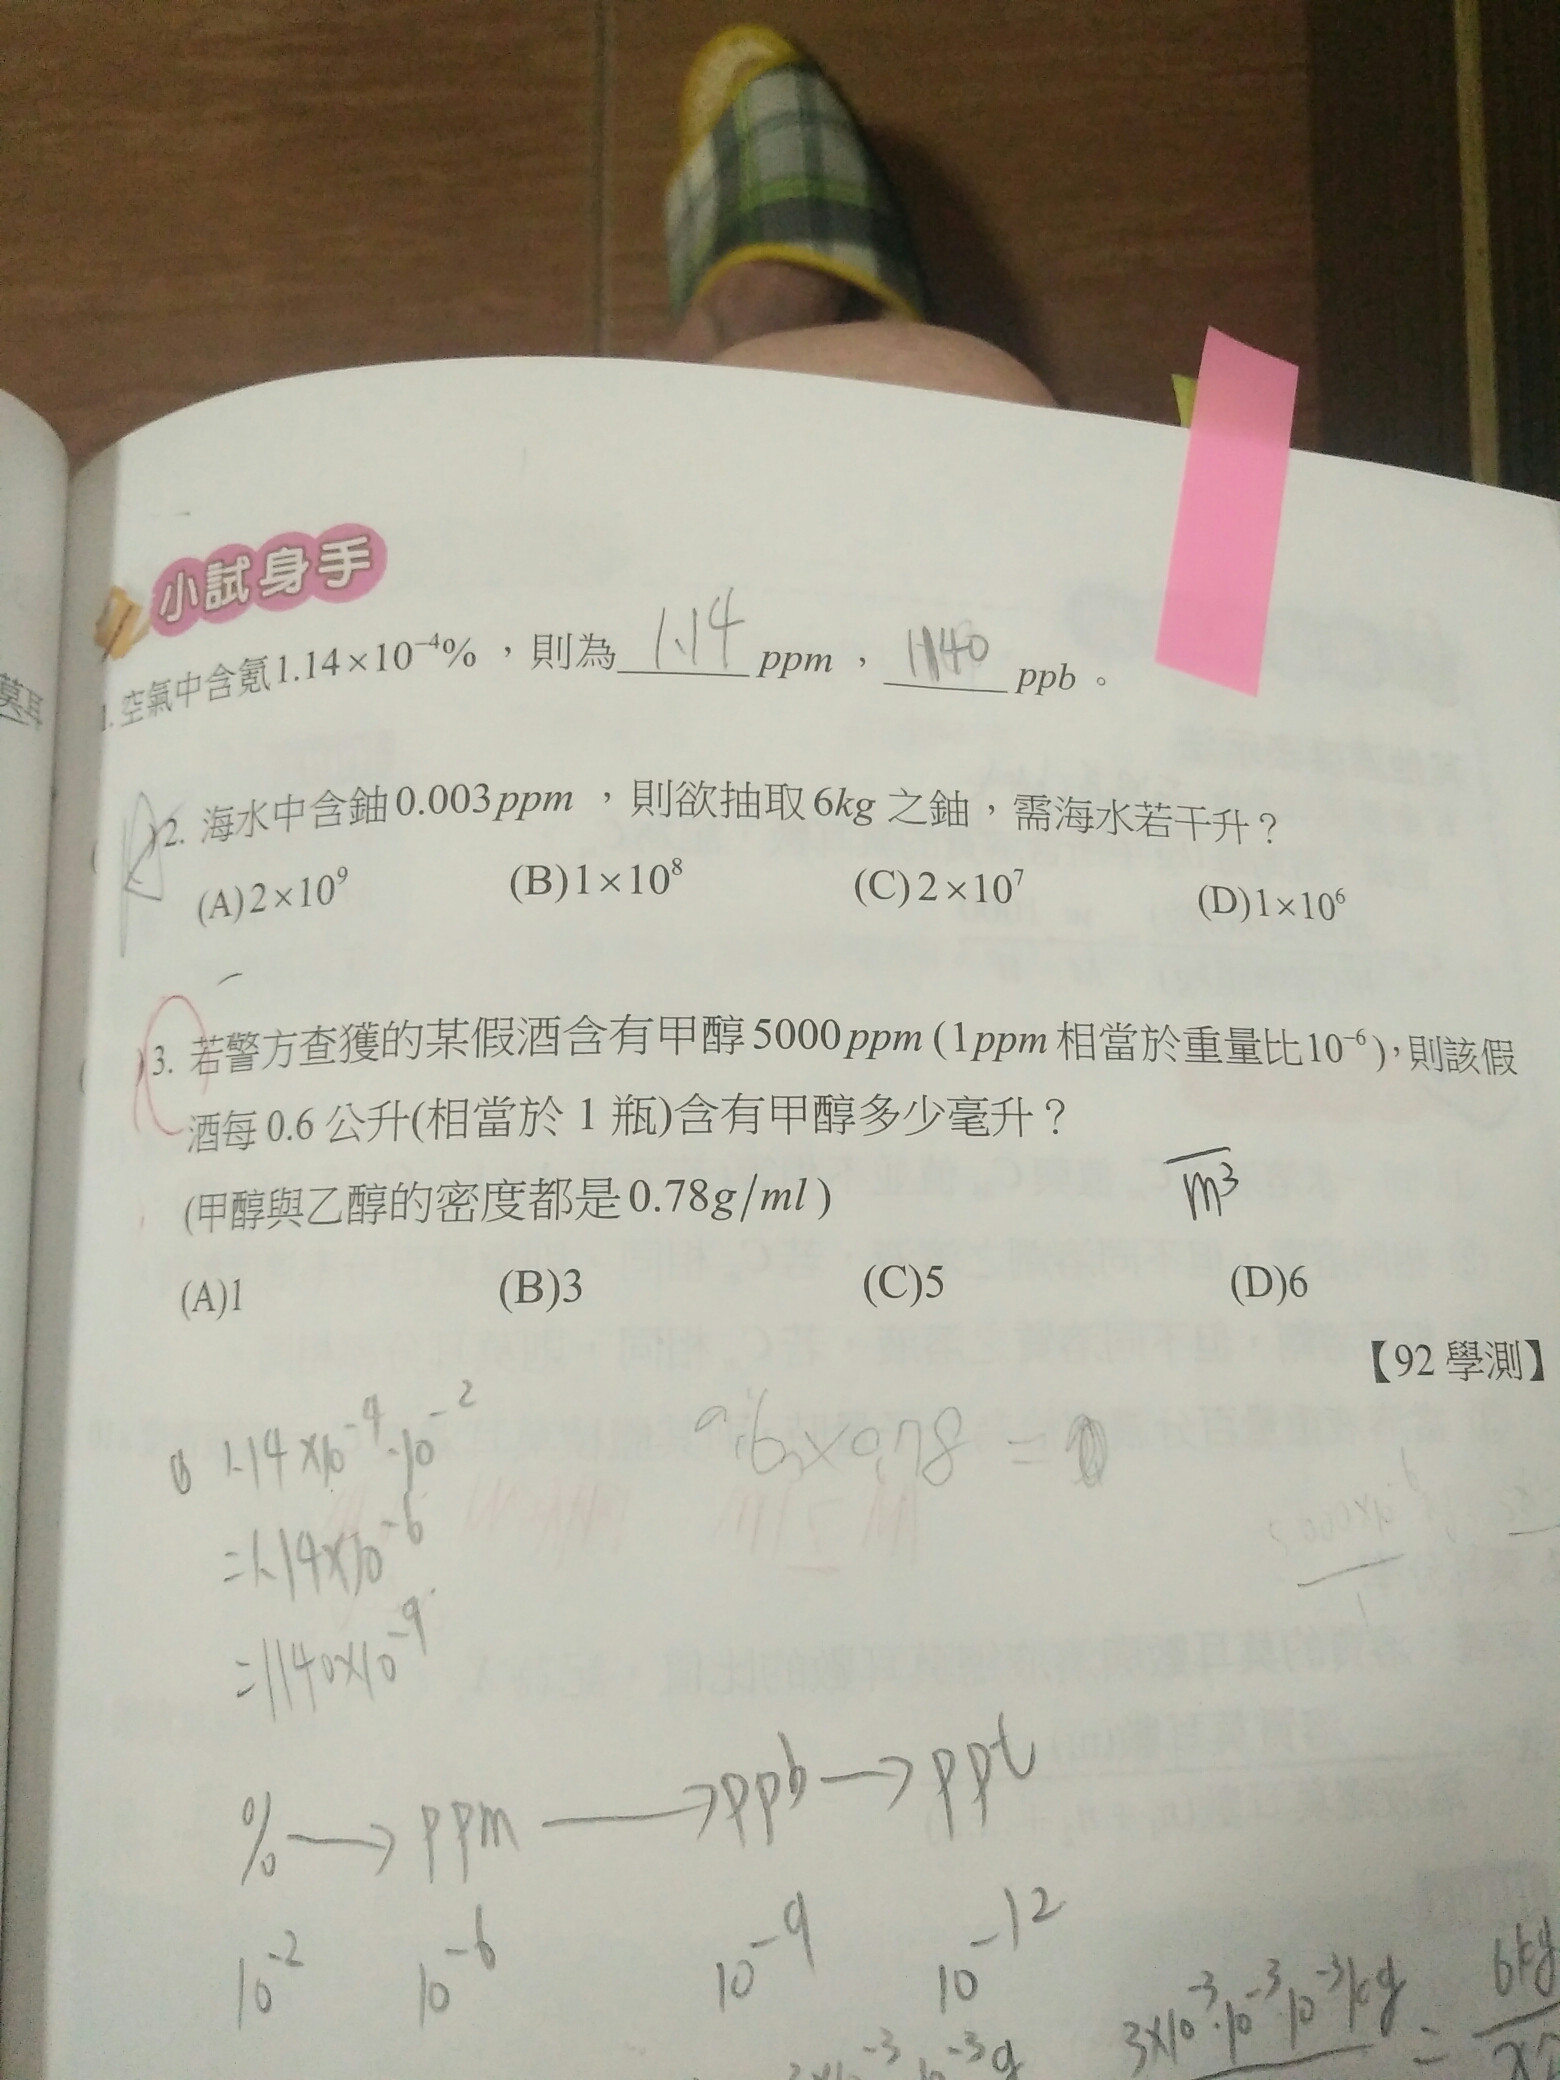 小試身手
1. 空氣中含氪1.14×10⁻⁴%，則為 1.14 ppm， 1140 ppb。
2. 海水中含鈾0.003ppm，則欲抽取6kg之鈾，需海水若干升？
(A)2×10⁹ (B)1×10⁸ (C)2×10⁷ (D)1×10⁶
3. 若警方查獲的某假酒含有甲醇5000ppm(1ppm相當於重量比10⁻⁶)，則該假
酒每0.6公升(相當於1瓶)含有甲醇多少毫升？
(甲醇與乙醇的密度都是0.78g/ml)
m³
(A)1 (B)3 (C)5 (D)6
【92學測】
1.14×10⁻⁴·10⁻²
=1.14×10⁻⁶
=1140×10⁻⁹
×0.78 =
% → ppm → ppb → ppt
10⁻² 10⁻⁶ 10⁻⁹ 10⁻¹²
3×10⁻³·10⁻³·10⁻³kg = 6kg